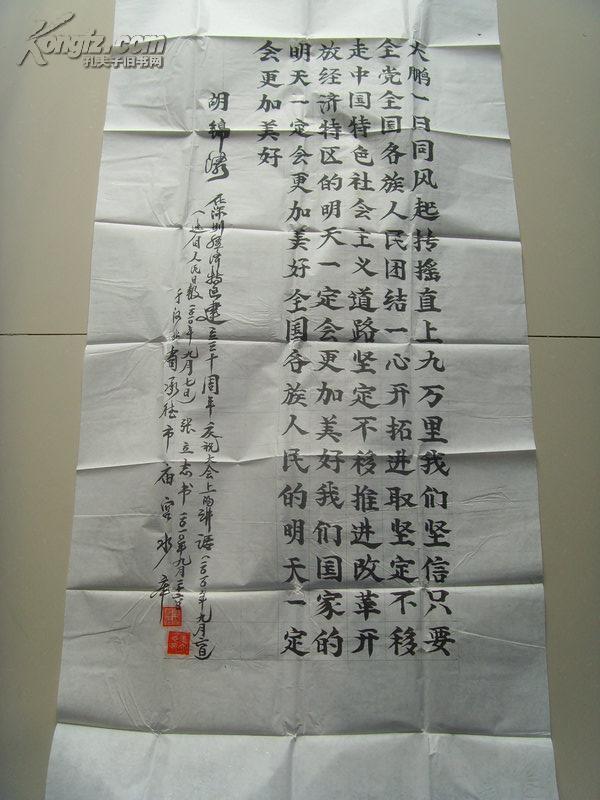 Kongfz.com
孔夫子旧书网
大鹏一日同风起抟摇直上九万里我们坚信只要
全党全国各族人民团结一心开拓进取坚定不移
走中国特色社会主义道路坚定不移推进改革开
放经济特区的明天一定会更加美好我们国家的
明天一定会更加美好全国各族人民的明天一定
会更加美好
胡锦涛 在深圳经济特区建立三十周年庆祝大会上的讲话(二〇一〇年九月六日)
(选自人民日报二〇一〇年九月七日) 张立志书 二〇一〇年九月
于河北省承德市